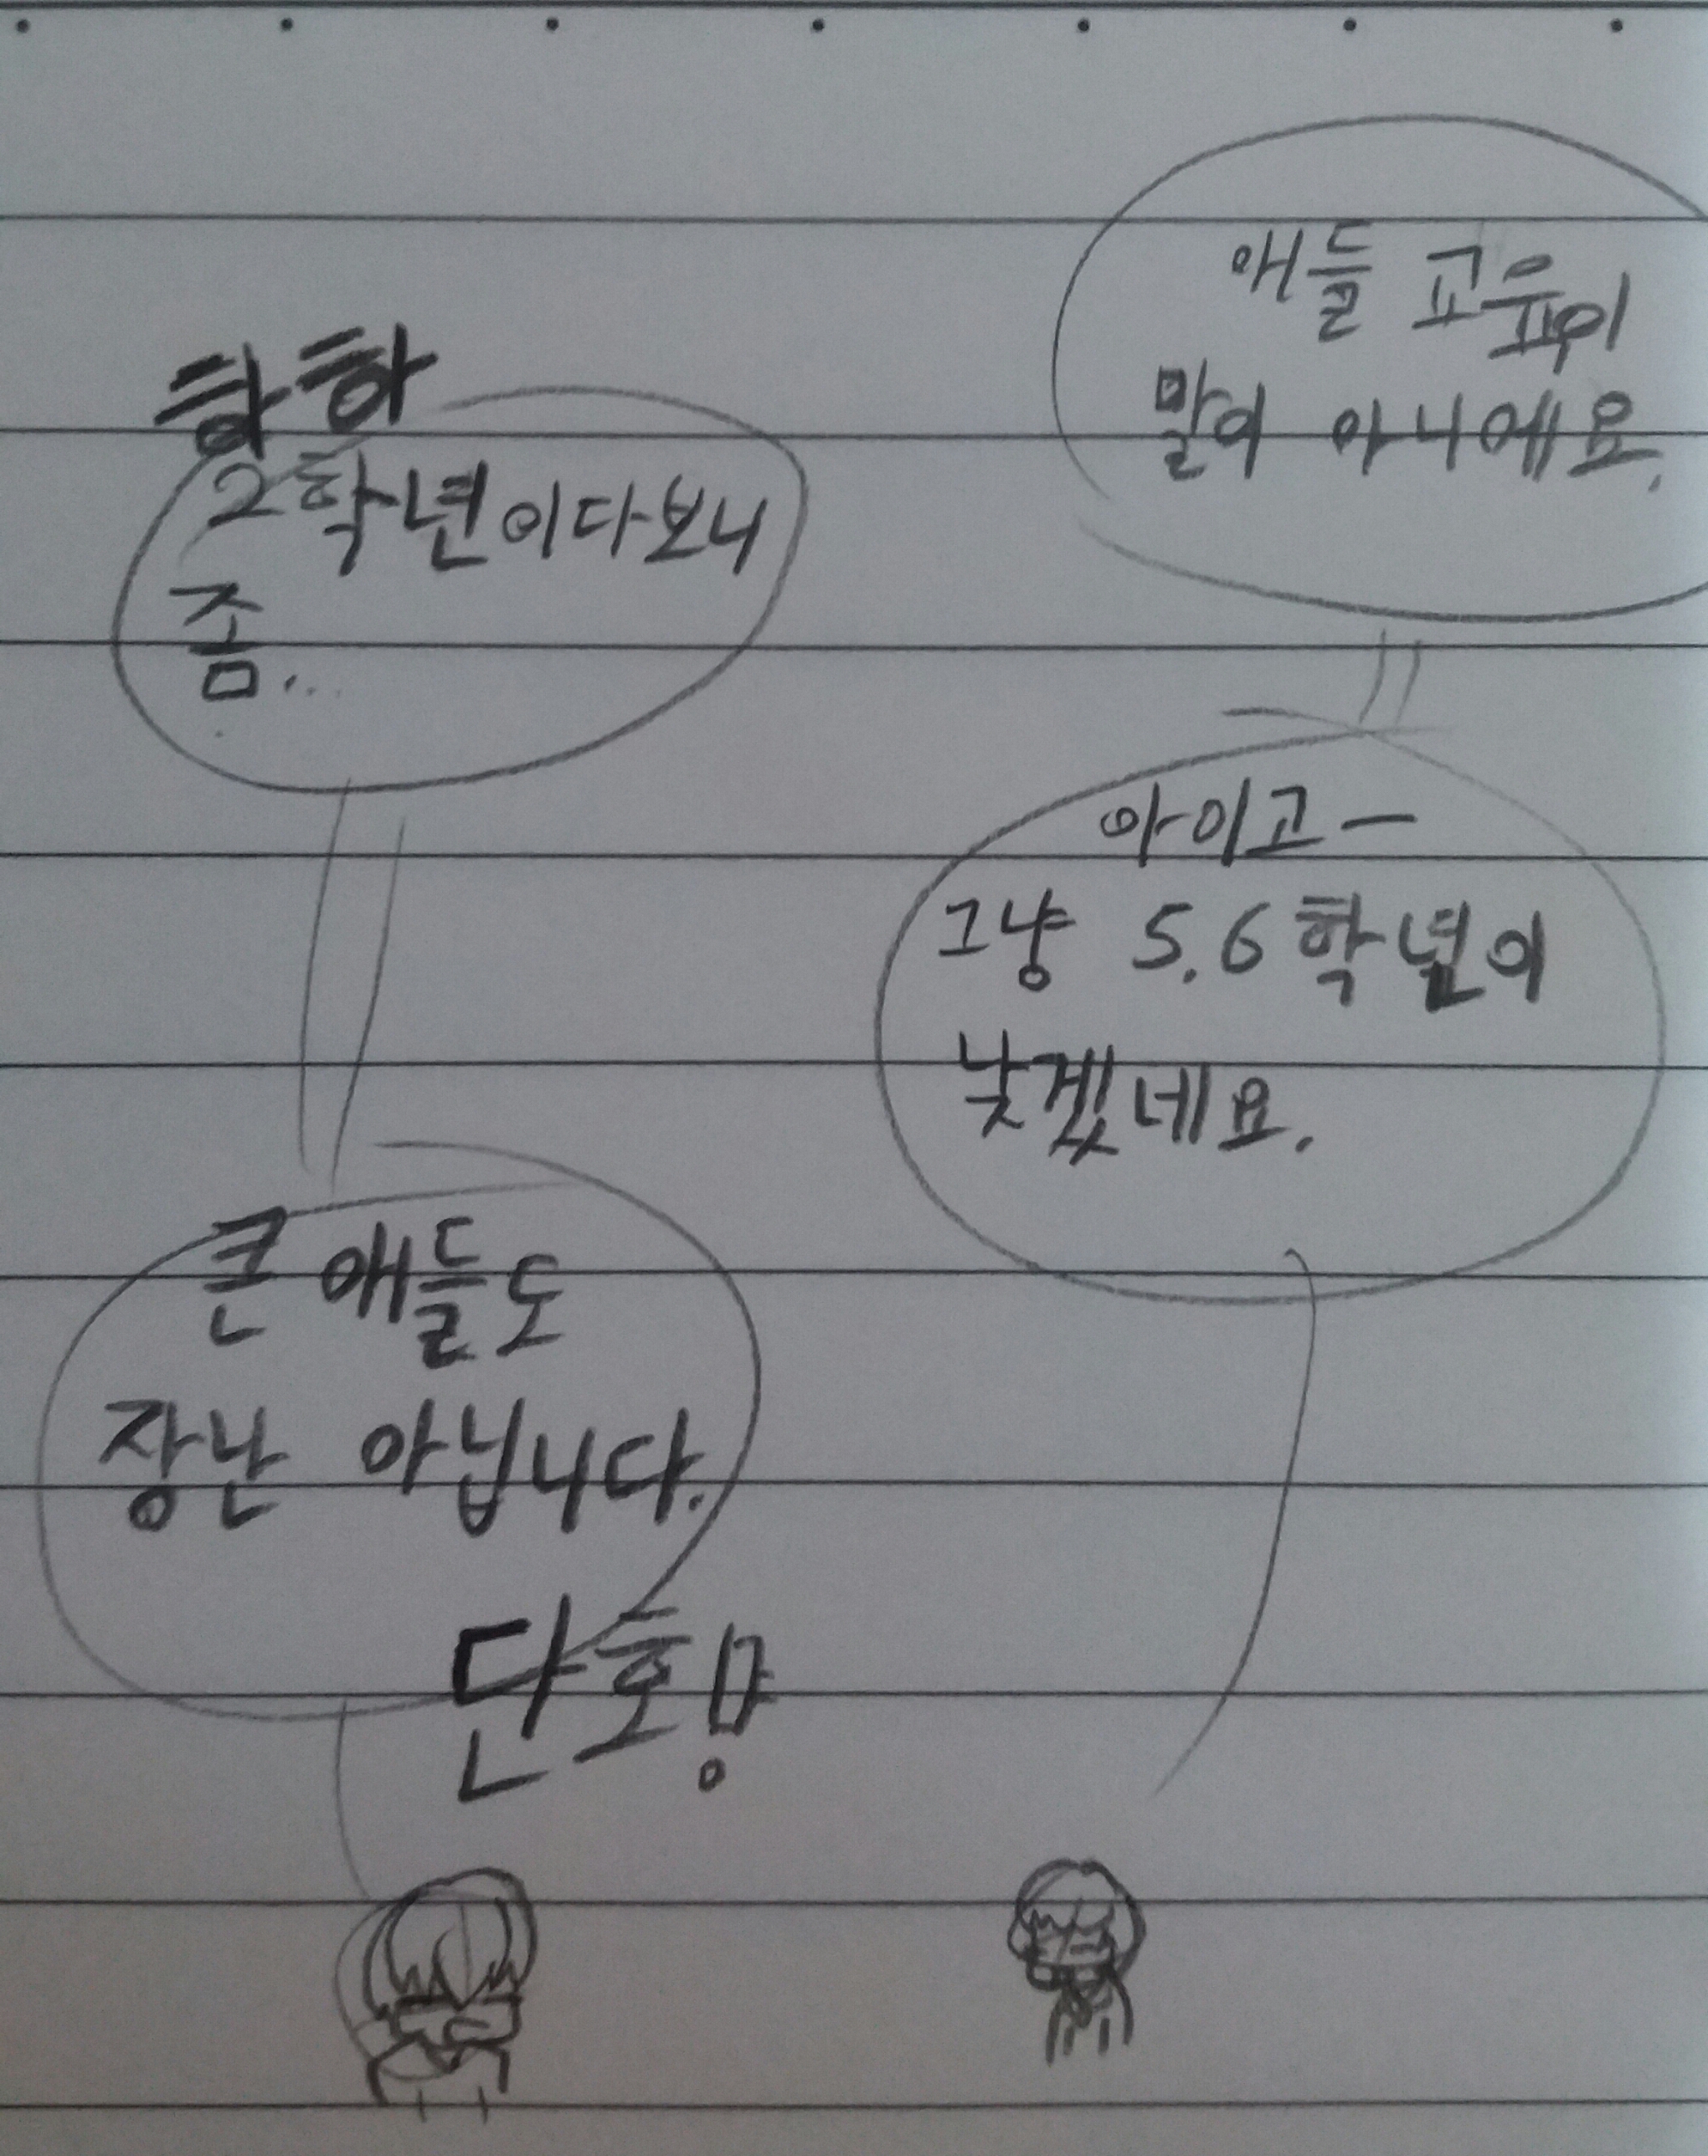 애들 교육이
말이 아니에요.
하하
2학년이다보니
좀...
아이고ㅡ
그냥 5.6학년이
낮겠네요.
큰 애들도
장난 아닙니다.
단호!